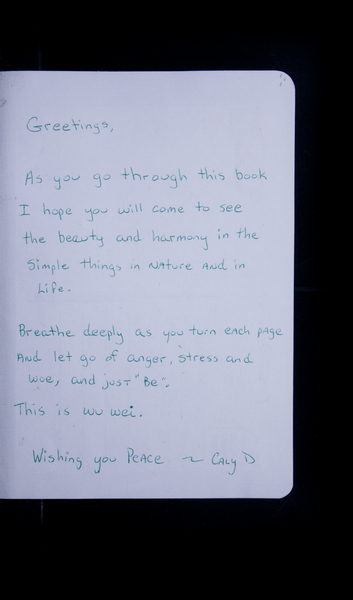 Greetings,
As you go through this book
I hope you will come to see
the beauty and harmony in the
simple things in NAture ANd in
Life.
Breathe deeply as you turn eAch pAge
ANd let go of anger, stress and
woe, and just "Be".
This is wu wei.
Wishing you PeAce ~ CAly D